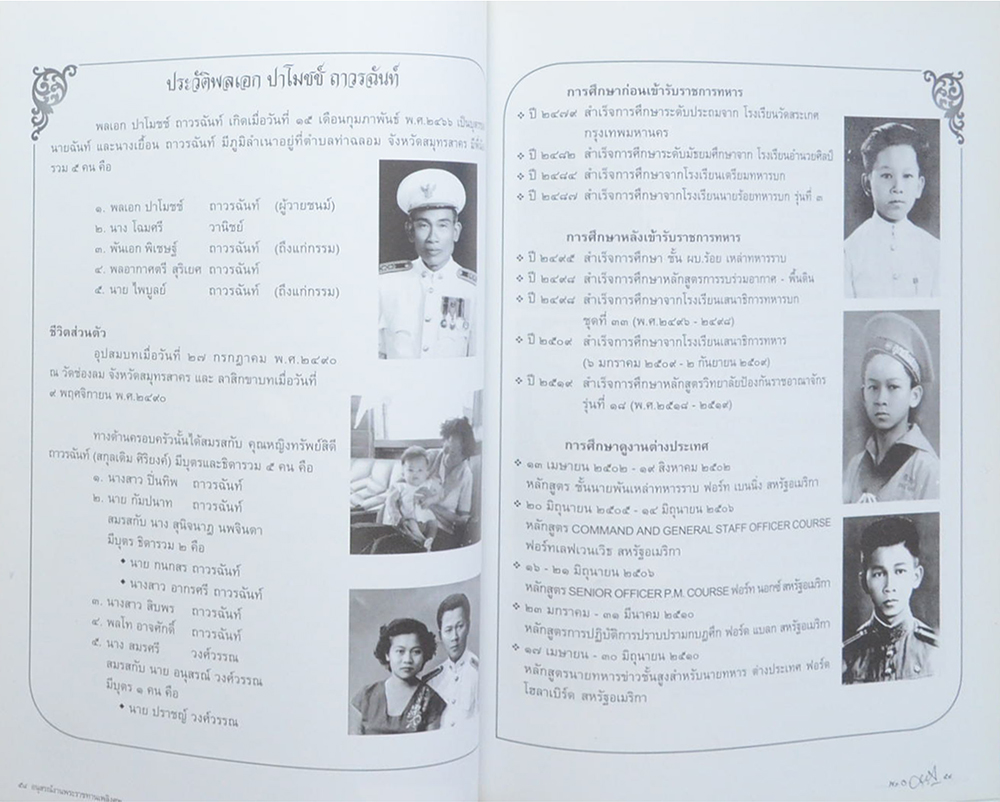 ประวัติพลเอก ปาโมชช์ ถาวรฉันท์
พลเอก ปาโมชช์ ถาวรฉันท์ เกิดเมื่อวันที่ ๑๕ เดือนกุมภาพันธ์ พ.ศ.๒๔๖๖
นายฉันท์ และนางเยื้อน ถาวรฉันท์ มีภูมิลำเนาอยู่ที่ตำบลท่าฉลอม จังหวัดสมุทรสาคร
รวม ๕ คน คือ
๑. พลเอก ปาโมชช์ ถาวรฉันท์ (ผู้วายชนม์)
๒. นาง โฉมศรี วานิชย์
๓. พันเอก พิเชษฐ์ ถาวรฉันท์ (ถึงแก่กรรม)
๔. พลอากาศตรี สุริเยศ ถาวรฉันท์
๕. นาย ไพบูลย์ ถาวรฉันท์ (ถึงแก่กรรม)
ชีวิตส่วนตัว
อุปสมบทเมื่อวันที่ ๒๗ กรกฎาคม พ.ศ.๒๔๙๐
ณ วัดช่องลม จังหวัดสมุทรสาคร และ ลาสิกขาบทเมื่อวันที่
๙ พฤศจิกายน พ.ศ.๒๔๙๐
ทางด้านครอบครัวนั้นได้สมรสกับ คุณหญิงทรัพย์สิดี
ถาวรฉันท์ (สกุลเดิม ศิริยงค์) มีบุตรและธิดารวม ๕ คน คือ
๑. นางสาว ปิ่นทิพ ถาวรฉันท์
๒. นาย กัมปนาท ถาวรฉันท์
สมรสกับ นาง สุนิจนาฎ นพจินดา
มีบุตร ธิดารวม ๒ คือ
• นาย กนกสร ถาวรฉันท์
• นางสาว อาภรศรี ถาวรฉันท์
๓. นางสาว สิบพร ถาวรฉันท์
๔. พลโท อาจศักดิ์ ถาวรฉันท์
๕. นาง สมรศรี วงศ์วรรณ
สมรสกับ นาย อนุสรณ์ วงศ์วรรณ
มีบุตร ๑ คน คือ
• นาย ปราชญ์ วงศ์วรรณ
๕๘ อนุสรณ์งานพระราชทานเพลิงศพ
การศึกษาก่อนเข้ารับราชการทหาร
❖ ปี ๒๔๗๙ สำเร็จการศึกษาระดับประถมจาก โรงเรียนวัดสระเกศ
กรุงเทพมหานคร
❖ ปี ๒๔๘๒ สำเร็จการศึกษาระดับมัธยมศึกษาจาก โรงเรียนอำนวยศิลป์
❖ ปี ๒๔๘๔ สำเร็จการศึกษาจากโรงเรียนเตรียมทหารบก
❖ ปี ๒๔๘๗ สำเร็จการศึกษาจากโรงเรียนนายร้อยทหารบก รุ่นที่ ๓
การศึกษาหลังเข้ารับราชการทหาร
❖ ปี ๒๔๙๕ สำเร็จการศึกษา ชั้น ผบ.ร้อย เหล่าทหารราบ
❖ ปี ๒๔๙๘ สำเร็จการศึกษาหลักสูตรการรบร่วมอากาศ - พื้นดิน
❖ ปี ๒๔๙๘ สำเร็จการศึกษาจากโรงเรียนเสนาธิการทหารบก
ชุดที่ ๓๓ (พ.ศ.๒๔๙๖ - ๒๔๙๘)
❖ ปี ๒๕๐๙ สำเร็จการศึกษาจากโรงเรียนเสนาธิการทหาร
(๖ มกราคม ๒๕๐๙ - ๒ กันยายน ๒๕๐๙)
❖ ปี ๒๕๑๙ สำเร็จการศึกษาหลักสูตรวิทยาลัยป้องกันราชอาณาจักร
รุ่นที่ ๑๘ (พ.ศ.๒๕๑๘ - ๒๕๑๙)
การศึกษาดูงานต่างประเทศ
❖ ๑๓ เมษายน ๒๕๐๒ - ๑๙ สิงหาคม ๒๕๐๒
หลักสูตร ชั้นนายพันเหล่าทหารราบ ฟอร์ท เบนนิ่ง สหรัฐอเมริกา
❖ ๒๐ มิถุนายน ๒๕๐๕ - ๑๔ มิถุนายน ๒๕๐๖
หลักสูตร COMMAND AND GENERAL STAFF OFFICER COURSE
ฟอร์ทเลฟเวนเวิช สหรัฐอเมริกา
❖ ๑๖ - ๒๑ มิถุนายน ๒๕๐๖
หลักสูตร SENIOR OFFICER P.M. COURSE ฟอร์ท นอกซ์ สหรัฐอเมริกา
❖ ๒๓ มกราคม - ๓๑ มีนาคม ๒๕๑๐
หลักสูตรการปฏิบัติการปราบปรามกบฏศึก ฟอร์ต แบลก สหรัฐอเมริกา
❖ ๑๗ เมษายน - ๓๐ มิถุนายน ๒๕๑๐
หลักสูตรนายทหารข่าวชั้นสูงสำหรับนายทหาร ต่างประเทศ ฟอร์ต
โฮลาเบิร์ต สหรัฐอเมริกา